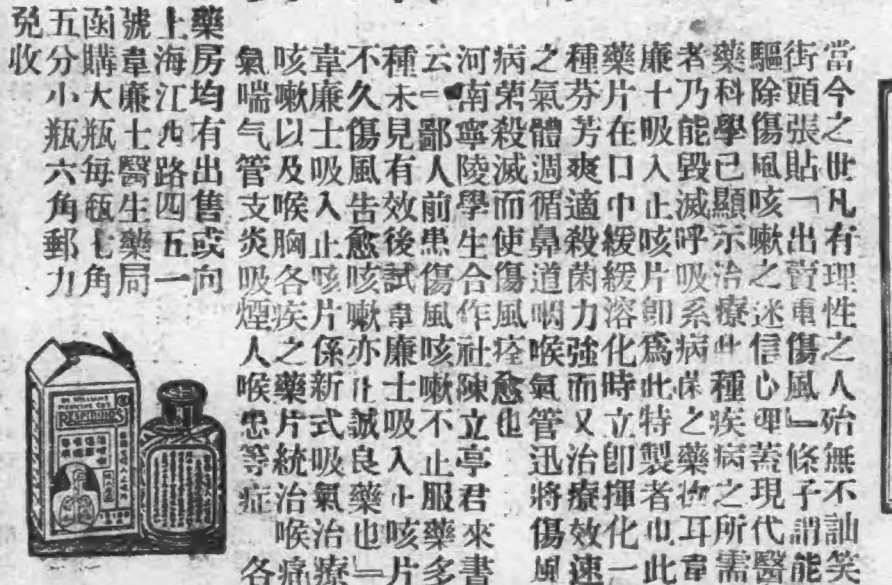 當今之世凡有理性之人殆無不訕笑
街頭張貼「出賣重傷風」條子謂能
驅除傷風咳嗽之迷信心理蓋現代醫
藥科學已顯示治療此種疾病之所需
者乃能毀滅呼吸系病菌之藥物耳韋
廉士吸入止咳片卽爲此特製者也此
藥片在口中緩緩溶化時立卽揮化一
種芬芳爽適殺菌力強而又治療效速
之氣體週循鼻道咽喉氣管迅將傷風
病菌殺滅而使傷風痊愈也
河南寧陵學生合作社陳立亭君來書
云「鄙人前患傷風咳嗽不止服藥多
種未見有效後試韋廉士吸入止咳片
不久傷風告愈咳嗽亦止誠良藥也」
韋廉士吸入止咳片係新式吸氣治療
咳嗽以及喉胸各疾之藥片統治喉痛
氣喘气管支炎吸煙人喉患等症 各
藥房均有出售或向
上海江西路四五一
號韋廉士醫生藥局
函購大瓶每瓶七角
五分小瓶六角郵力
免收
DR. WILLIAMS'
MEDICINE CO'S
RESPIROIDS